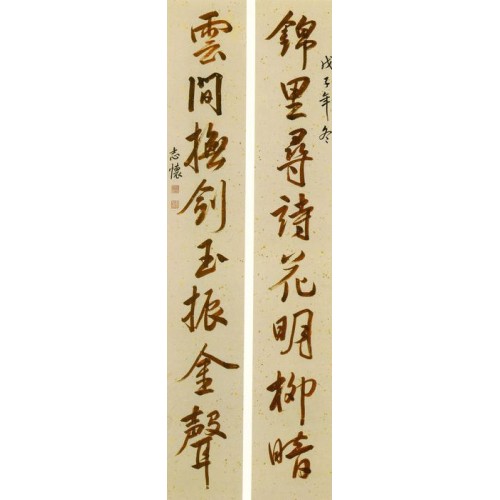 錦里尋詩花明柳暗
戊子年冬
雲間撫劍玉振金聲
志懷